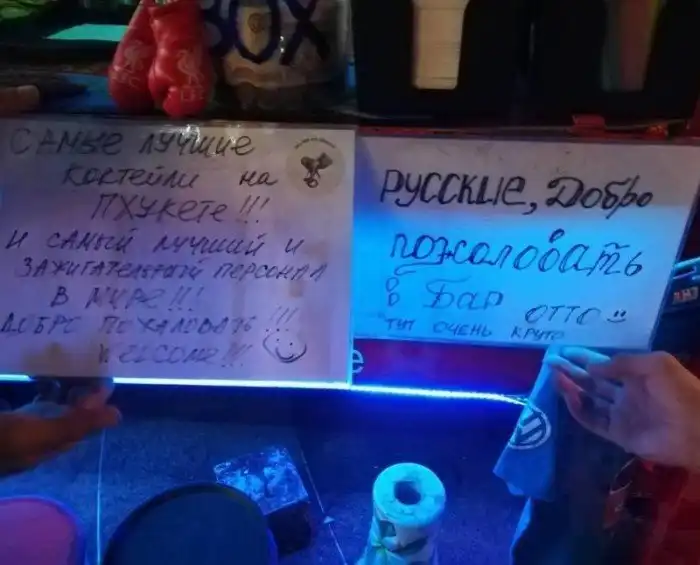 BOX
САМЫЕ ЛУЧШИЕ
КОКТЕЙЛИ НА
ПХУКЕТЕ!!!
И САМЫЙ ЛУЧШИЙ И
ЗАЖИГАТЕЛЬНЫЙ ПЕРСОНАЛ
В МИРЕ!!!
ДОБРО ПОЖАЛОВАТЬ!!!
WELCOME!!!
РУССКИЕ, ДОБРО
пожаловать
в Бар ОТТО
ТУТ ОЧЕНЬ КРУТО
e